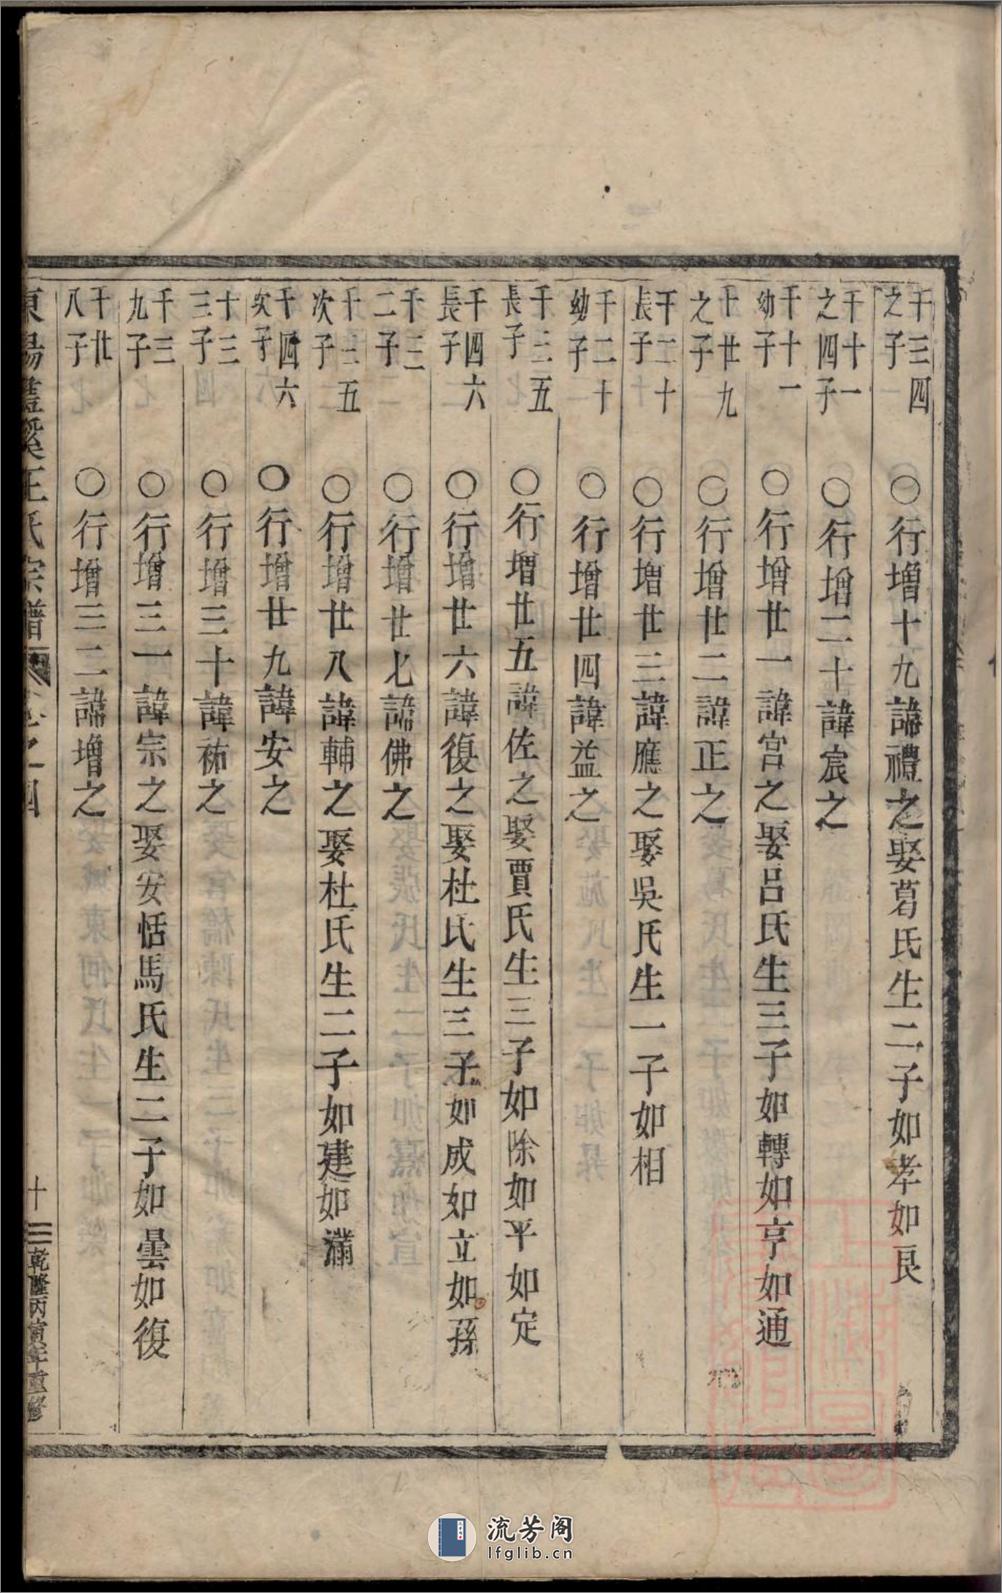 千三四之子
○行增十九諱禮之娶葛氏生二子如孝如良
千十一之四子
○行增二十諱宸之
千十一幼子
○行增廿一諱宮之娶呂氏生三子如轉如亨如通
千廿九之子
○行增廿二諱正之
千二十長子
○行增廿三諱應之娶吳氏生一子如相
千二十幼子
○行增廿四諱益之
千三五長子
○行增廿五諱佐之娶賈氏生三子如除如平如定
千四六長子
○行增廿六諱復之娶杜氏生三子如成如立如孫
千三二子
○行增廿七諱佛之
千三五次子
○行增廿八諱輔之娶杜氏生二子如建如滿
千四六次子
○行增廿九諱安之
千三三子
○行增三十諱祐之
千三九子
○行增三一諱宗之娶安恬馬氏生二子如曇如復
千廿八子
○行增三二諱增之
東陽畫溪王氏宗譜 卷之四 十三 乾隆丙寅年重修
流芳阁
lfglib.cn